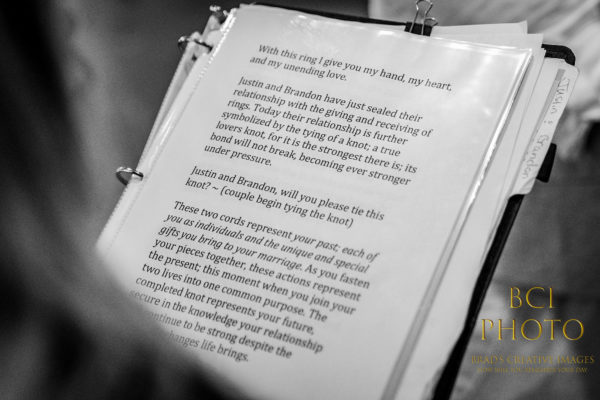 With this ring I give you my hand, my heart,
and my unending love.
Justin and Brandon have just sealed their
relationship with the giving and receiving of
rings. Today their relationship is further
symbolized by the tying of a knot; a true
lovers knot, for it is the strongest there is; its
bond will not break, becoming ever stronger
under pressure.
Justin and Brandon, will you please tie this
knot? ~ (couple begin tying the knot)
These two cords represent your past; each of
you as individuals and the unique and special
gifts you bring to your marriage. As you fasten
your pieces together, these actions represent
the present; this moment when you join your
two lives into one common purpose. The
completed knot represents your future,
secure in the knowledge your relationship
continue to be strong despite the
changes life brings.
Justin & Brandon
BCI
PHOTO
BRAD'S CREATIVE IMAGES